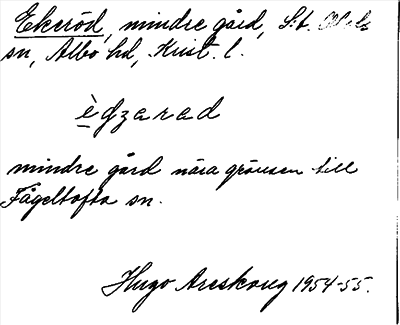 Ekeröd, mindre gård, S:t. Olofs
sn, Albo hd, Krist. l.
ègzarad
mindre gård nära gränsen till
Fågeltofta sn.
Hugo Areskoug 1954-55.